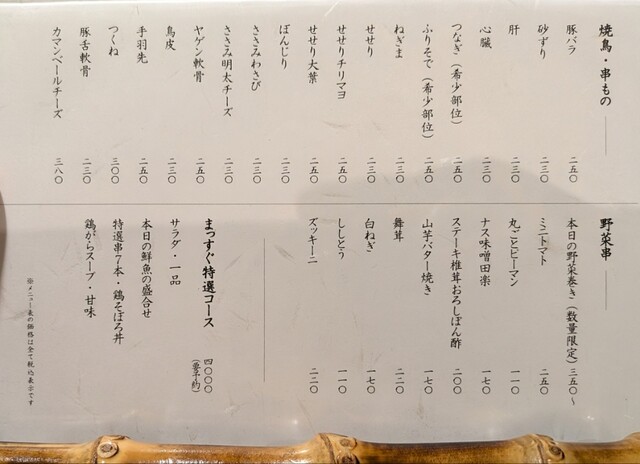 焼鳥・串もの
豚バラ 二五〇
砂ずり 二三〇
肝 二三〇
心臓 二三〇
つなぎ（希少部位） 二五〇
ふりそで（希少部位） 二五〇
ねぎま 二三〇
せせり 二三〇
せせりチリマヨ 二五〇
せせり大葉 二五〇
ぼんじり 二三〇
ささみわさび 二三〇
ささみ明太チーズ 二三〇
ヤゲン軟骨 二五〇
鳥皮 二三〇
手羽先 二五〇
つくね 三〇〇
豚舌軟骨 二三〇
カマンベールチーズ 三八〇
野菜串
本日の野菜巻き（数量限定） 三五〇〜
ミニトマト 二五〇
丸ごとピーマン 一一〇
ナス味噌田楽 一七〇
ステーキ椎茸おろしぽん酢 二〇〇
山芋バター焼き 一七〇
舞茸 二二〇
白ねぎ 一七〇
ししとう 一一〇
ズッキーニ 二二〇
まっすぐ特選コース 四〇〇〇
（要予約）
サラダ・一品
本日の鮮魚の盛合せ
特選串７本・鶏そぼろ丼
鶏がらスープ・甘味
※メニュー表の価格は全て税込表示です